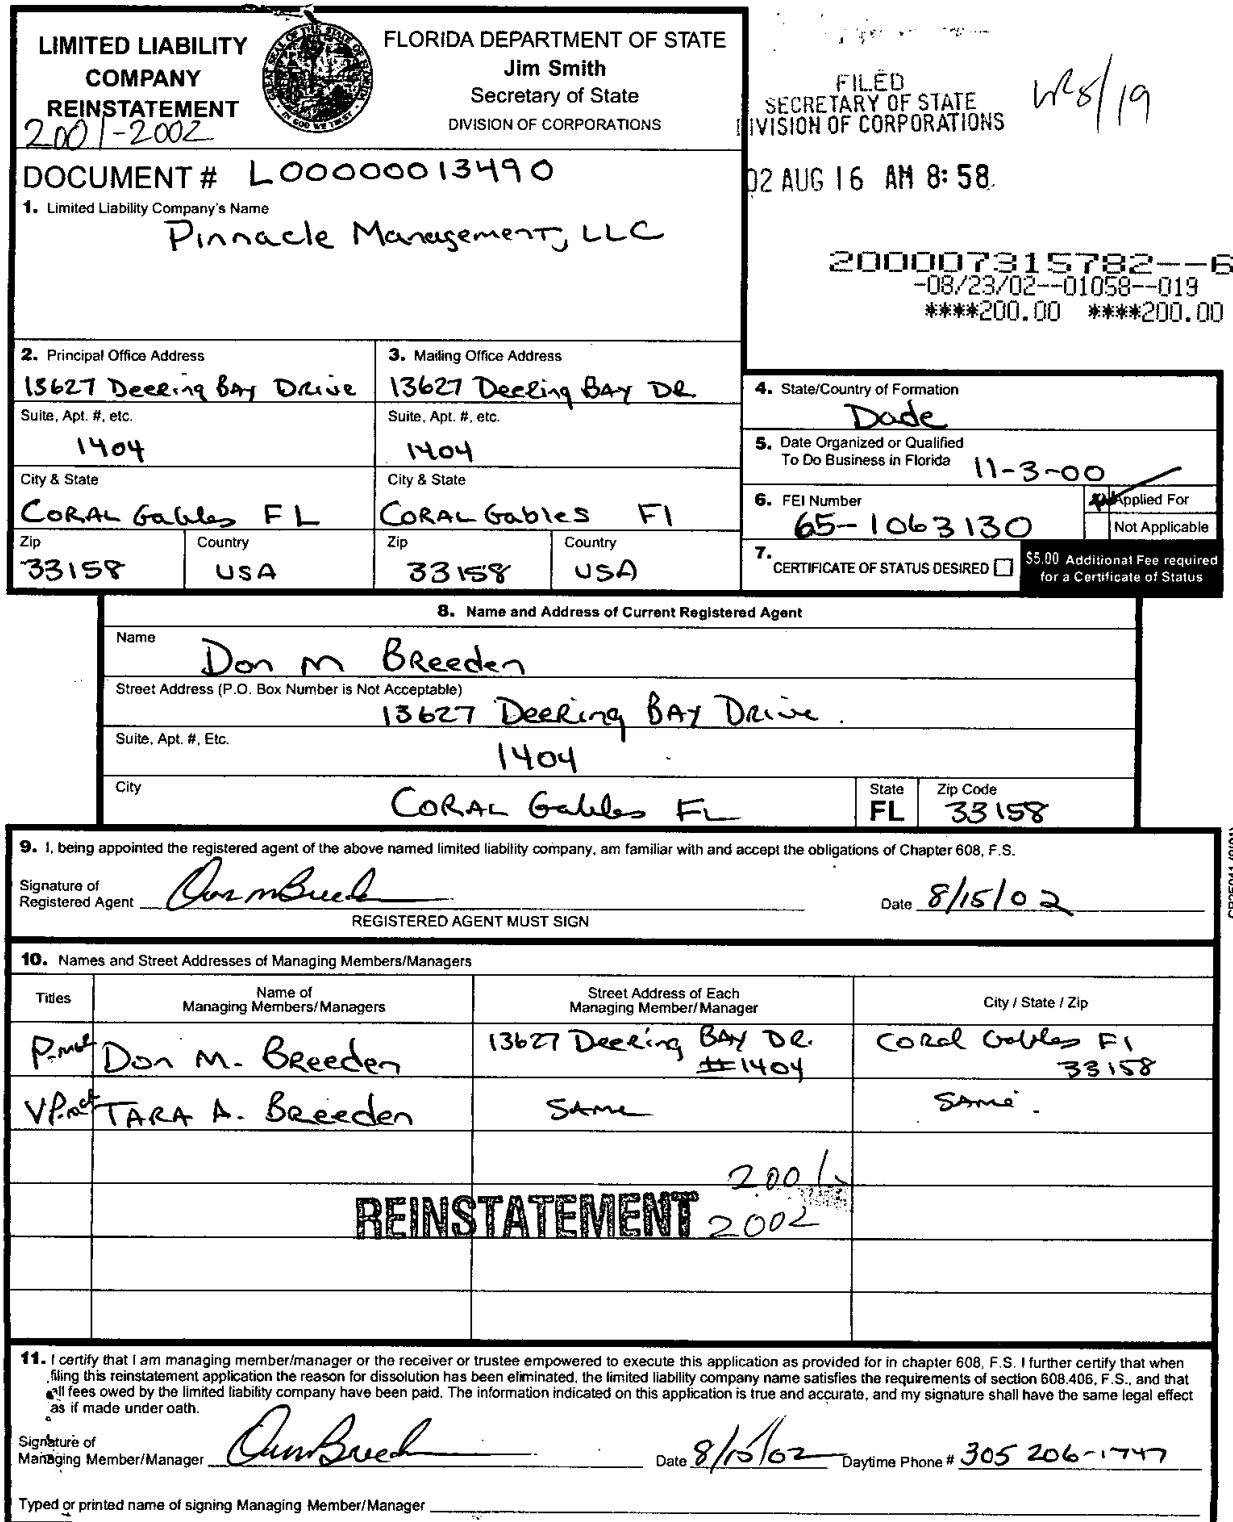 LIMITED LIABILITY
COMPANY
REINSTATEMENT
2001-2002
FLORIDA DEPARTMENT OF STATE
Jim Smith
Secretary of State
DIVISION OF CORPORATIONS
FILED
SECRETARY OF STATE
DIVISION OF CORPORATIONS
8/19
02 AUG 16 AM 8:58
DOCUMENT # L00000013490
1. Limited Liability Company's Name
Pinnacle Management, LLC
2000007315782--6
-08/23/02--01058--019
****200.00 ****200.00
2. Principal Office Address
13627 Deering Bay Drive
Suite, Apt. #, etc.
1404
City & State
Coral Gables FL
Zip
33158
Country
USA
3. Mailing Office Address
13627 Deering Bay DR.
Suite, Apt. #, etc.
1404
City & State
Coral Gables Fl
Zip
33158
Country
USA
4. State/Country of Formation
Dade
5. Date Organized or Qualified
To Do Business in Florida 11-3-00
6. FEI Number
65-1063130
Applied For
Not Applicable
7. CERTIFICATE OF STATUS DESIRED
$5.00 Additional Fee required
for a Certificate of Status
8. Name and Address of Current Registered Agent
Name
Don M Breeden
Street Address (P.O. Box Number is Not Acceptable)
13627 Deering Bay Drive.
Suite, Apt. #, Etc.
1404
City
Coral Gables FL
State
FL
Zip Code
33158
9. I, being appointed the registered agent of the above named limited liability company, am familiar with and accept the obligations of Chapter 608, F.S.
Signature of
Registered Agent
Date 8/15/02
REGISTERED AGENT MUST SIGN
10. Names and Street Addresses of Managing Members/Managers
Titles
Name of
Managing Members/Managers
Street Address of Each
Managing Member/Manager
City / State / Zip
Don M. Breeden
13627 Deering Bay DR.
#1404
Coral Gables Fl
33158
TARA A. Breeden
Same
Same.
REINSTATEMENT
2001
2002
11. I certify that I am managing member/manager or the receiver or trustee empowered to execute this application as provided for in chapter 608, F.S. I further certify that when
filing this reinstatement application the reason for dissolution has been eliminated, the limited liability company name satisfies the requirements of section 608.406, F.S., and that
all fees owed by the limited liability company have been paid. The information indicated on this application is true and accurate, and my signature shall have the same legal effect
as if made under oath.
Signature of
Managing Member/Manager
Date 8/15/02
Daytime Phone # 305 206-1747
Typed or printed name of signing Managing Member/Manager